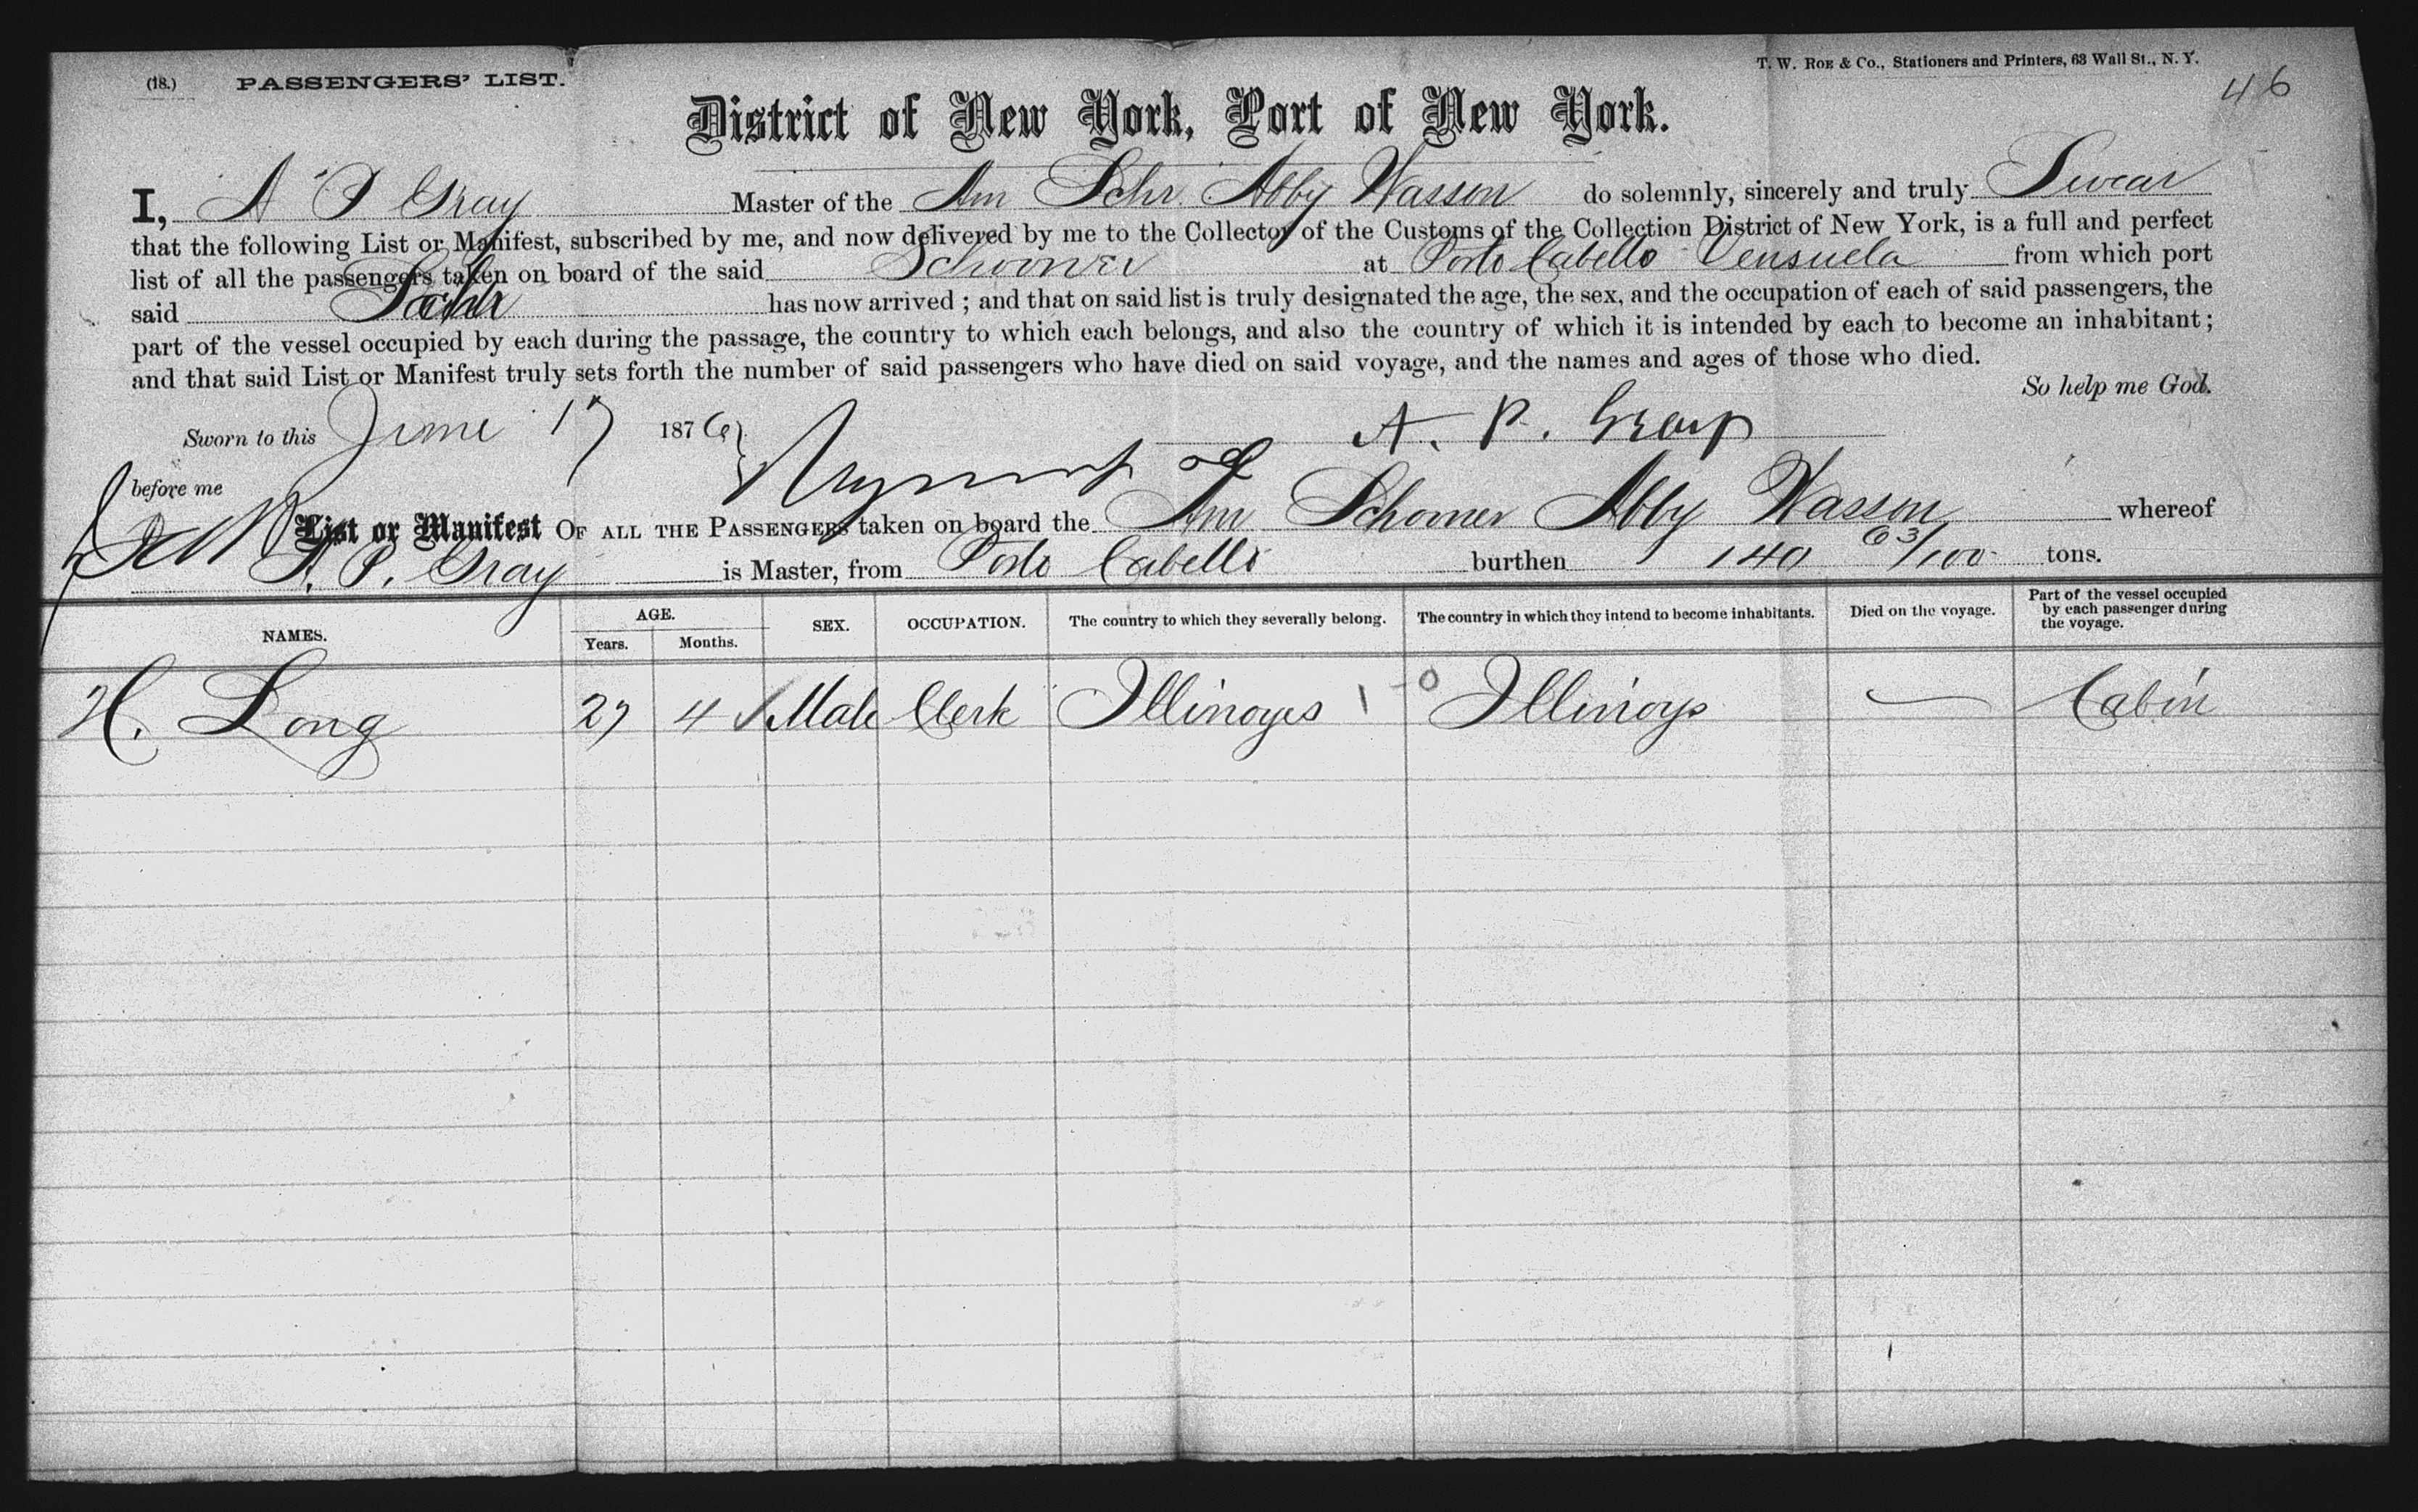 (18.) PASSENGERS' LIST. T. W. ROE & Co., Stationers and Printers, 63 Wall St., N. Y.
46
District of New York, Port of New York.
I, A P Gray Master of the Am Schr Abby Wasson do solemnly, sincerely and truly Swear
that the following List or Manifest, subscribed by me, and now delivered by me to the Collector of the Customs of the Collection District of New York, is a full and perfect
list of all the passengers taken on board of the said Schooner at Porto Cabello Vensuela from which port
said Schr has now arrived ; and that on said list is truly designated the age, the sex, and the occupation of each of said passengers, the
part of the vessel occupied by each during the passage, the country to which each belongs, and also the country of which it is intended by each to become an inhabitant ;
and that said List or Manifest truly sets forth the number of said passengers who have died on said voyage, and the names and ages of those who died.
So help me God.
Sworn to this June 17 1876 A. P. Gray
before me
List or Manifest OF ALL THE PASSENGERS taken on board the Am Schooner Abby Wasson whereof
A. P. Gray is Master, from Porto Cabello burthen 140 63/100 tons.
NAMES. AGE. Years. Months. SEX. OCCUPATION. The country to which they severally belong. The country in which they intend to become inhabitants. Died on the voyage. Part of the vessel occupied by each passenger during the voyage.
H. Long 27 4 Male Clerk Illinoyes Illinoys — Cabin